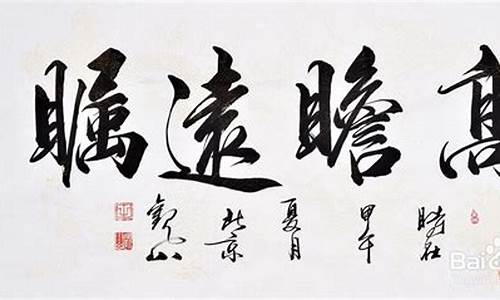 高瞻遠瞩
時在甲午夏月北京
Bai